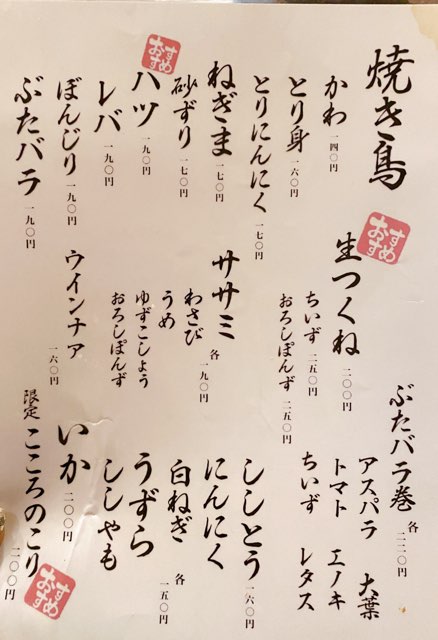 焼き鳥
かわ 一四〇円
とり身 一六〇円
とりにんにく 一七〇円
ねぎま 一七〇円
砂ずり 一七〇円
おすすめ
ハツ 一九〇円
レバ 一九〇円
ぼんじり 一九〇円
ぶたバラ 一九〇円
おすすめ
生つくね 二〇〇円
ちいず 二五〇円
おろしぽんず 二五〇円
ササミ 各一九〇円
わさび
うめ
ゆずこしょう
おろしぽんず
ウインナァ 一六〇円
ぶたバラ巻 各二二〇円
アスパラ 大葉
トマト エノキ
ちいず レタス
ししとう 一六〇円
にんにく
白ねぎ
うずら
ししゃも
各一五〇円
いか 二〇〇円
限定 こころのこり 二〇〇円
おすすめ